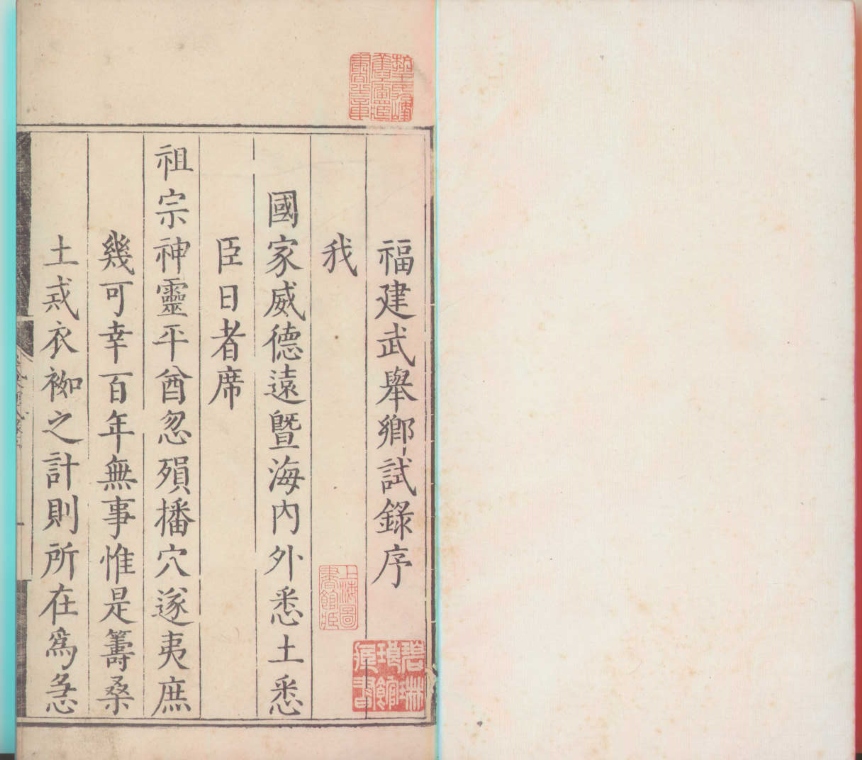 福建武舉鄉試錄序
我
國家威德遠暨海內外悉土悉
臣日者席
祖宗神靈平酋忽殞播穴遂夷庶
幾可幸百年無事惟是籌桑
土戒衣袽之計則所在爲急
上海圖書館藏